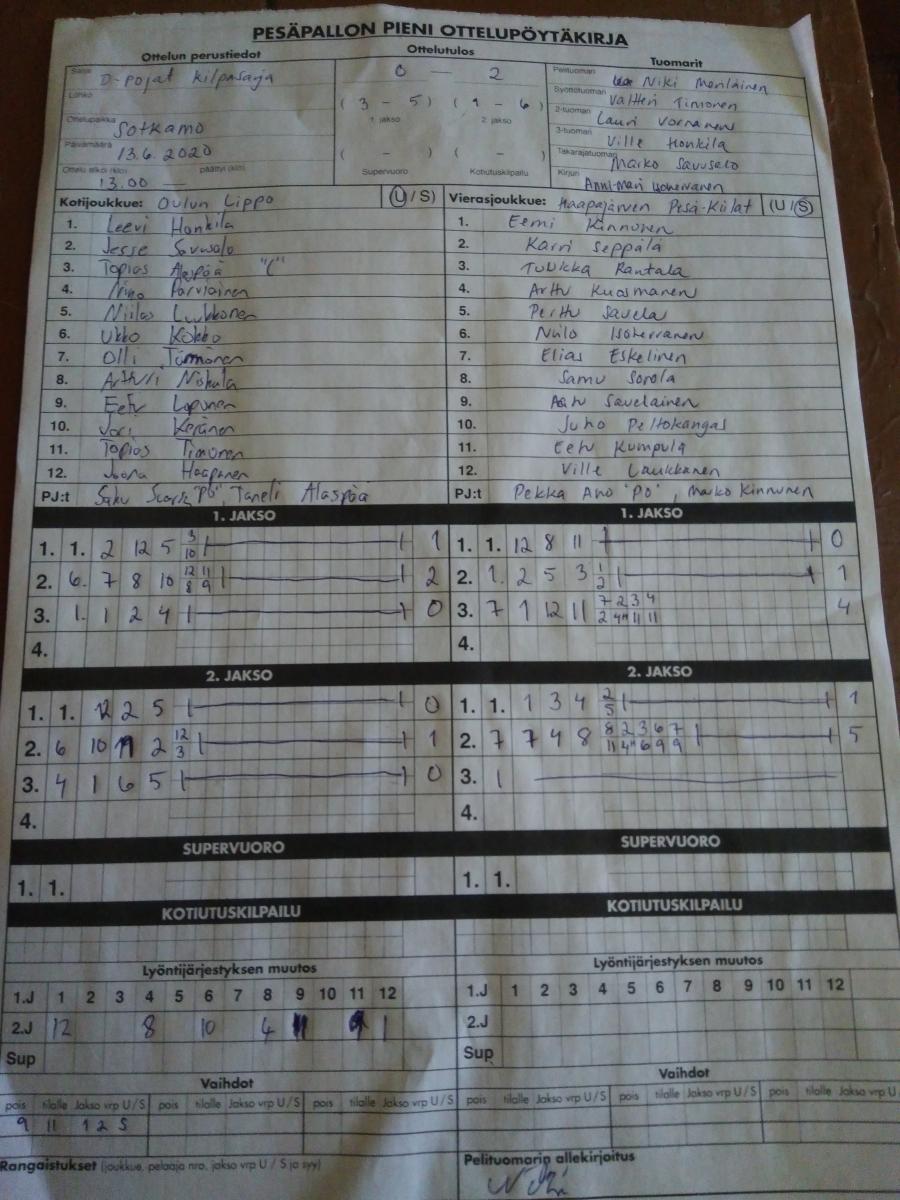 PESÄPALLON PIENI OTTELUPÖYTÄKIRJA
Ottelun perustiedot Ottelutulos Tuomarit
Sarja D-pojat kilpasarja 0 — 2 Pelituomari Niki
Lohko (3 – 5) (1 – 6) Syöttötuomari Valtteri Timonen
1. jakso 2. jakso 2-tuomari Lauri Vornanen
Ottelupaikka Sotkamo 3-tuomari Ville Honkila
Päivämäärä 13.6.2020 ( – ) ( – ) Takarajatuomari Marko Savusalo
Ottelu alkoi (klo) 13.00 — päättyi (klo) Supervuoro Kotiutuskilpailu Kirjuri Anni-Mari Isoherranen
Kotijoukkue: Oulun Lippo (U / S) Vierasjoukkue: Haapajärven Pesä-Kiilat (U / S)
1. Leevi Honkila 1. Eemi Kinnunen
2. Jesse Savusalo 2. Karri Seppälä
3. Topias Alaspää "C" 3. Tuukka Rantala
4. Niko Parviainen 4. Arttu Kuosmanen
5. Niilas Luukkonen 5. Perttu Savela
6. Ukko Kokko 6. Niilo Isoherranen
7. Olli Törmänen 7. Elias Eskelinen
8. Artturi Niskala 8. Samu Sorola
9. Eetu Loponen 9. Aatu Savelainen
10. Jori Keränen 10. Juho Peltokangas
11. Topias Timonen 11. Eetu Kumpula
12. Joona Haapanen 12. Ville Laukkanen
PJ:t Saku "PO" Taneli Alaspää PJ:t Pekka Aho "PO", Marko Kinnunen
1. JAKSO 1. JAKSO
1. 1. 2 12 5 3/10 1 1. 1. 12 8 11 0
2. 6. 7 8 10 12/8 11/9 2 2. 1. 2 5 3 1/2 1
3. 1. 1 2 4 0 3. 7 1 12 11 7/2 2/4" 3/11 4/11 4
4. 4.
2. JAKSO 2. JAKSO
1. 1. 12 2 5 0 1. 1. 1 3 4 2/5 1
2. 6 10 11 2 12/3 1 2. 7 7 4 8 8/11 2/4" 3/6 6/9 7/9 5
3. 4 1 6 5 0 3. 1 —
4. 4.
SUPERVUORO SUPERVUORO
1. 1. 1. 1.
KOTIUTUSKILPAILU KOTIUTUSKILPAILU
Lyöntijärjestyksen muutos Lyöntijärjestyksen muutos
1.J 1 2 3 4 5 6 7 8 9 10 11 12 1.J 1 2 3 4 5 6 7 8 9 10 11 12
2.J 12 8 10 4 11 9 1 2.J
Sup Sup
Vaihdot Vaihdot
pois tilalle Jakso vrp U / S pois tilalle Jakso vrp U / S pois tilalle Jakso vrp U / S pois tilalle Jakso vrp U / S pois tilalle Jakso vrp U / S pois tilalle Jakso vrp U / S
9 11 1 2 S
Rangaistukset (joukkue, pelaaja nro, jakso vrp U / S ja syy) Pelituomarin allekirjoitus